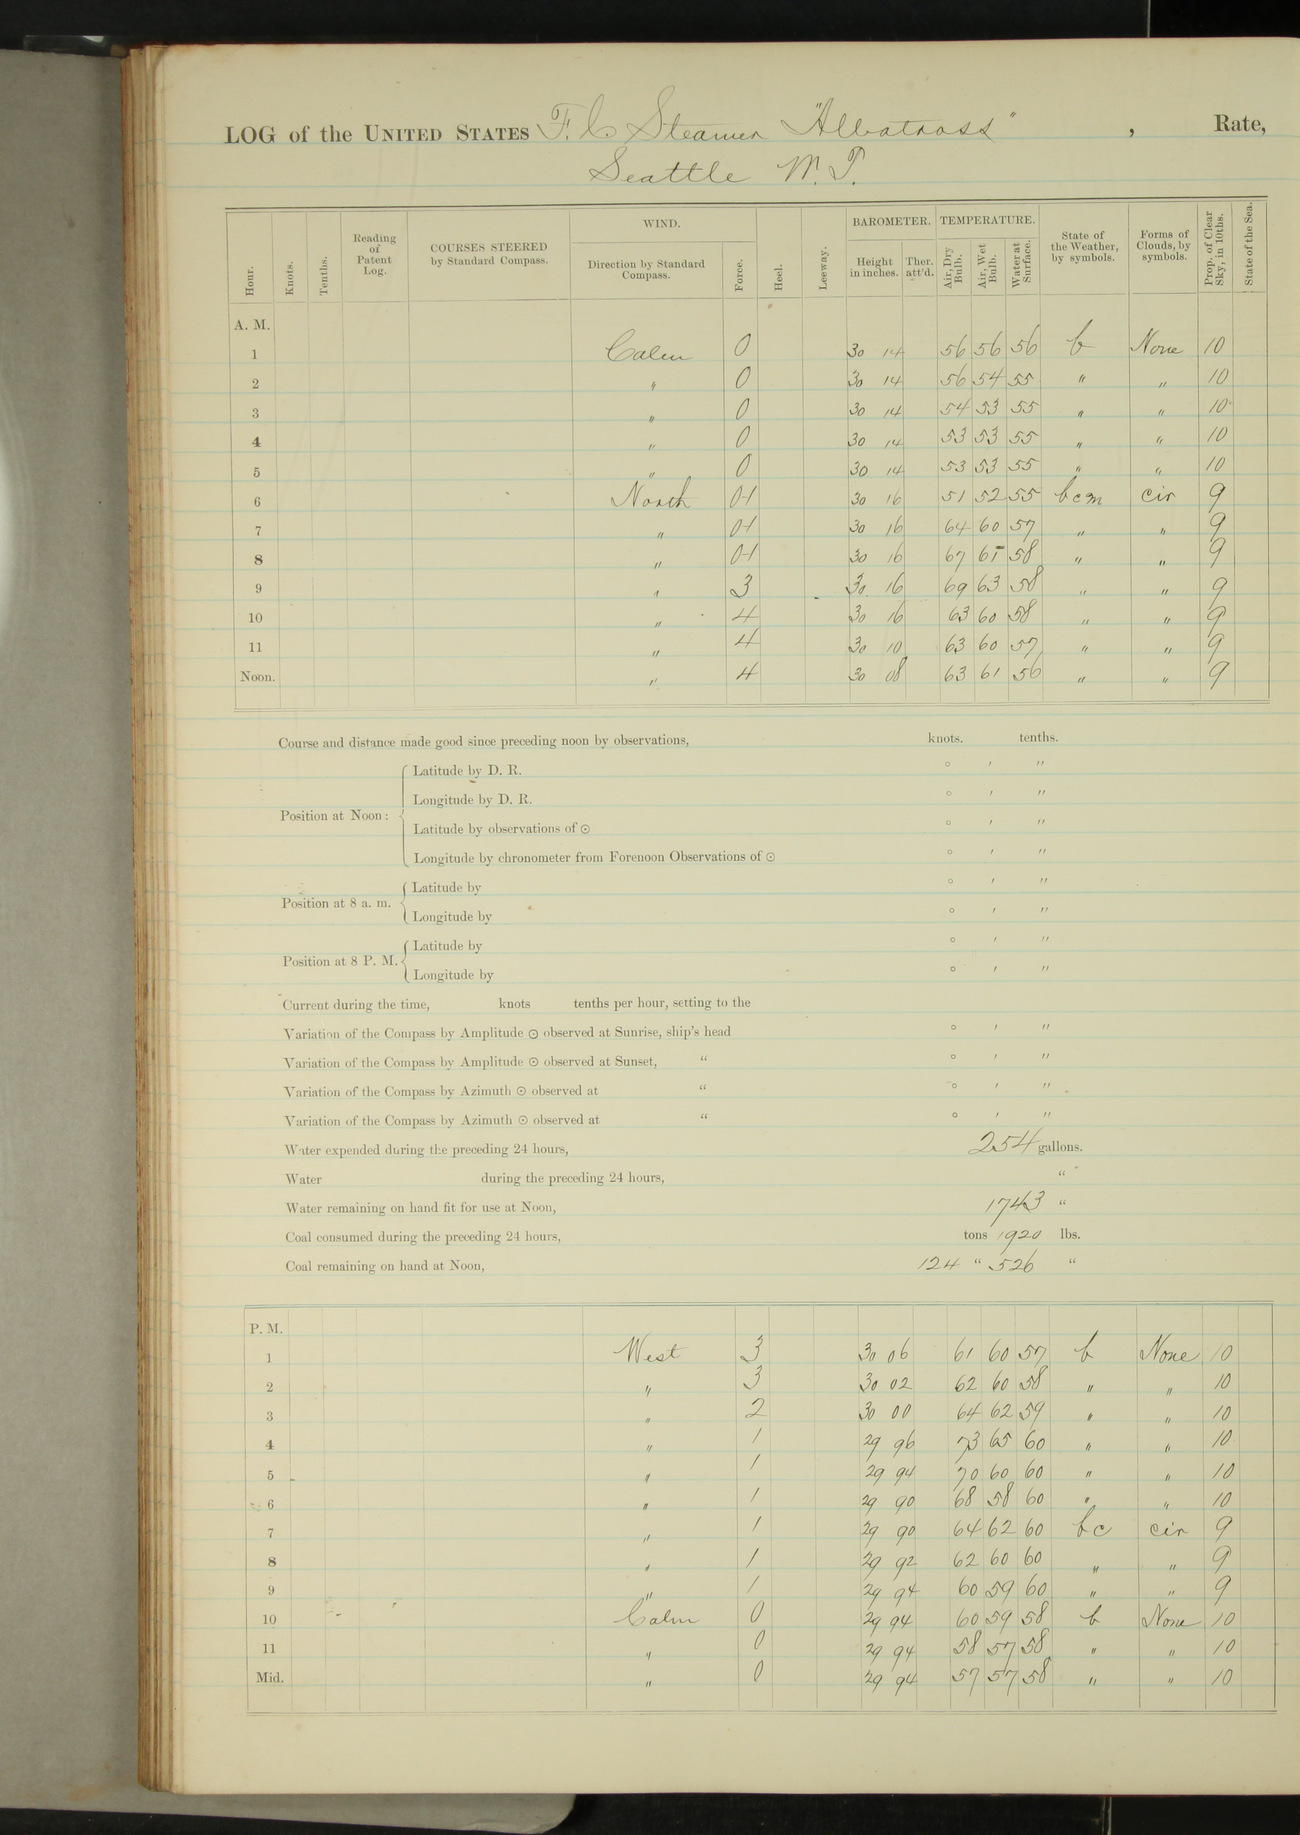 LOG of the UNITED STATES F. C. Steamer "Albatross" , Rate,
Seattle W. T.
Hour. Knots. Tenths. Reading of Patent Log. COURSES STEERED by Standard Compass. WIND. Direction by Standard Compass. Force. Heel. Leeway. BAROMETER. Height in inches. Ther. att'd. TEMPERATURE. Air, Dry Bulb. Air, Wet Bulb. Water at Surface. State of the Weather, by symbols. Forms of Clouds, by symbols. Prop. of Clear Sky, in 10ths. State of the Sea.
A. M.
1 Calm 0 30 14 56 56 56 b None 10
2 " 0 30 14 56 54 55 " " 10
3 " 0 30 14 54 53 55 " " 10
4 " 0 30 14 53 53 55 " " 10
5 " 0 30 14 53 53 55 " " 10
6 North 0-1 30 16 51 52 55 bcm cir 9
7 " 0-1 30 16 64 60 57 " " 9
8 " 0-1 30 16 67 65 58 " " 9
9 " 3 30 16 69 63 58 " " 9
10 " 4 30 16 63 60 58 " " 9
11 " 4 30 10 63 60 57 " " 9
Noon. " 4 30 08 63 61 56 " " 9
Course and distance made good since preceding noon by observations, knots. tenths.
Latitude by D. R. ° ′ ″
Longitude by D. R. ° ′ ″
Position at Noon :
Latitude by observations of ⊙ ° ′ ″
Longitude by chronometer from Forenoon Observations of ⊙ ° ′ ″
Latitude by ° ′ ″
Position at 8 a. m.
Longitude by ° ′ ″
Latitude by ° ′ ″
Position at 8 P. M.
Longitude by ° ′ ″
Current during the time, knots tenths per hour, setting to the
Variation of the Compass by Amplitude ⊙ observed at Sunrise, ship's head ° ′ ″
Variation of the Compass by Amplitude ⊙ observed at Sunset, " ° ′ ″
Variation of the Compass by Azimuth ⊙ observed at " ° ′ ″
Variation of the Compass by Azimuth ⊙ observed at " ° ′ ″
Water expended during the preceding 24 hours, 254 gallons.
Water during the preceding 24 hours, "
Water remaining on hand fit for use at Noon, 1743 "
Coal consumed during the preceding 24 hours, tons 1920 lbs.
Coal remaining on hand at Noon, 124 " 526 "
P. M.
1 West 3 30 06 61 60 57 b None 10
2 " 3 30 02 62 60 58 " " 10
3 " 2 30 00 64 62 59 " " 10
4 " 1 29 96 73 65 60 " " 10
5 " 1 29 94 70 60 60 " " 10
6 " 1 29 90 68 58 60 " " 10
7 " 1 29 90 64 62 60 bc cir 9
8 " 1 29 92 62 60 60 " " 9
9 " 1 29 94 60 59 60 " " 9
10 Calm 0 29 94 60 59 58 b None 10
11 " 0 29 94 58 57 58 " " 10
Mid. " 0 29 94 57 57 58 " " 10